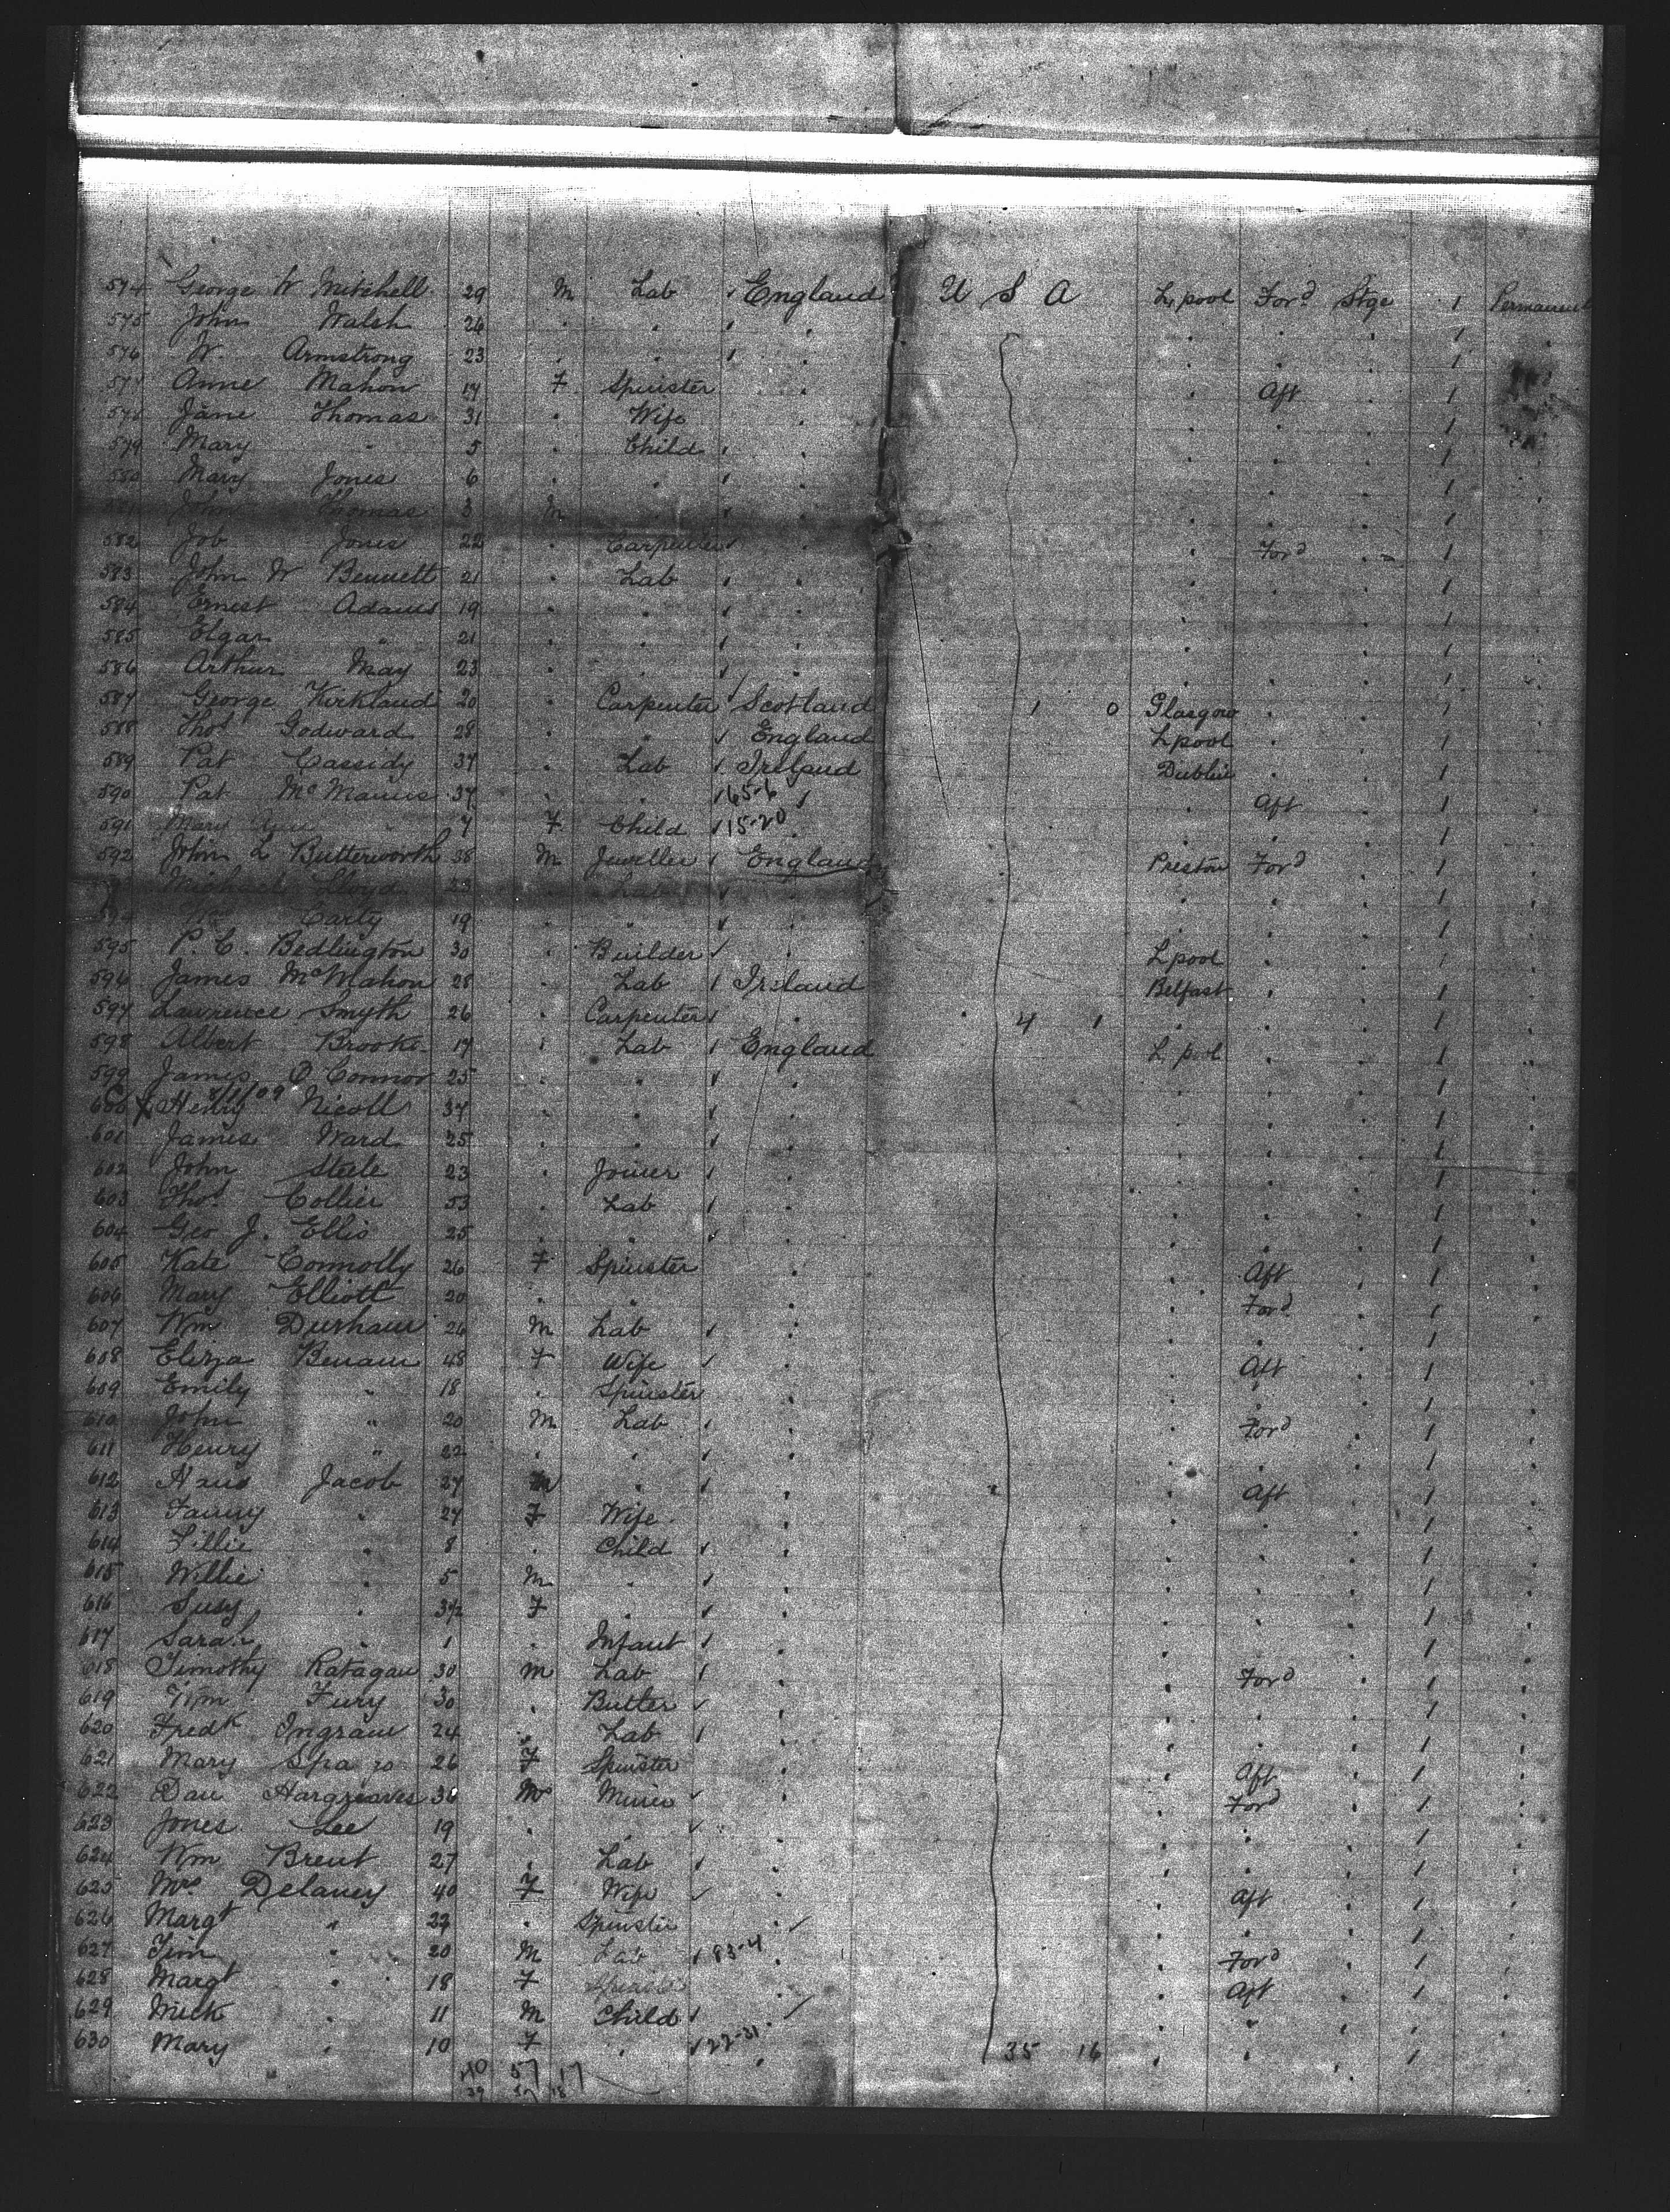 574 George W Mitchell 29 M Lab England U S A L.pool Ford Stge 1 Permanent
575 John Walsh 26 . . . 1
576 W. Armstrong 23 . . . 1
577 Anne Mahon 17 F Spinster . Aft 1
578 Jane Thomas 31 . Wife . 1
579 Mary " 5 . Child . 1
580 Mary Jones 6 . . . 1
John Thomas 3 M . . 1
582 Job Jones 22 . Carpenter . Ford 1
583 John W Bennett 21 . Lab . 1
584 Ernest Adams 19 . . . 1
585 Elgar " 21 . . . 1
586 Arthur May 23 . . . 1
587 George Kirkland 20 . Carpenter Scotland 1 0 Glasgow . 1
588 Thos Godward 28 . . England Lpool . 1
589 Pat Cassidy 37 . Lab Ireland Dublin . 1
590 Pat McManus 37 . . 65-6 . Aft 1
591 Mary Ann " 7 F Child 15-20 . 1
592 John L Butterworth 38 M Jeweller England Preston Ford 1
Michael Lloyd . Lab . 1
Early 19 . . . 1
595 P. C. Bedlington 30 . Builder . Lpool . 1
596 James McMahon 28 . Lab Ireland Belfast . 1
597 Lawrence Smyth 26 . Carpenter . 4 1 . 1
598 Albert Brooks 17 . Lab England L pool . 1
599 James O'Connor 25 . . . 1
600 X Henry Nicoll 37 . . . 1
601 James Ward 25 . . . 1
602 John Steele 23 . Joiner . 1
603 Thos Collier 53 . Lab . 1
604 Geo J. Ellis 25 . . . 1
605 Kate Connolly 26 F Spinster . Aft 1
606 Mary Elliott 20 . . . Ford 1
607 Wm Durham 26 M Lab . 1
608 Eliza Benam 48 F Wife . Aft 1
609 Emily " 18 . Spinster . 1
610 John " 20 M Lab . Ford 1
611 Henry " 22 . . . 1
612 Jacob 27 M . . Aft 1
613 Fanny " 27 F Wife . 1
614 Lillie " 8 . Child . 1
615 Willie " 5 M . . 1
616 Susy " 3½ F . . 1
617 Sarah " 1 . Infant . 1
618 Timothy Ratagan 30 M Lab . Ford 1
619 Wm Fury 30 . Butler . 1
620 Fredk Ingram 24 . Lab . 1
621 Mary 26 F Spinster . Aft 1
622 Dan Hargreaves 30 M Miner . Ford 1
623 Jones Lee 19 . . . 1
624 Wm Brent 27 . Lab . 1
625 Mrs Delaney 40 F Wife . Aft 1
626 Margt " 22 . Spinster . 1
627 Jim " 20 M Lab 83-4 . Ford 1
628 Margt " 18 F Spinster . Aft 1
629 Mick " 11 M Child . 1
630 Mary " 10 F . 22-31 . 35 16 . 1
40 57 17
39 57 18